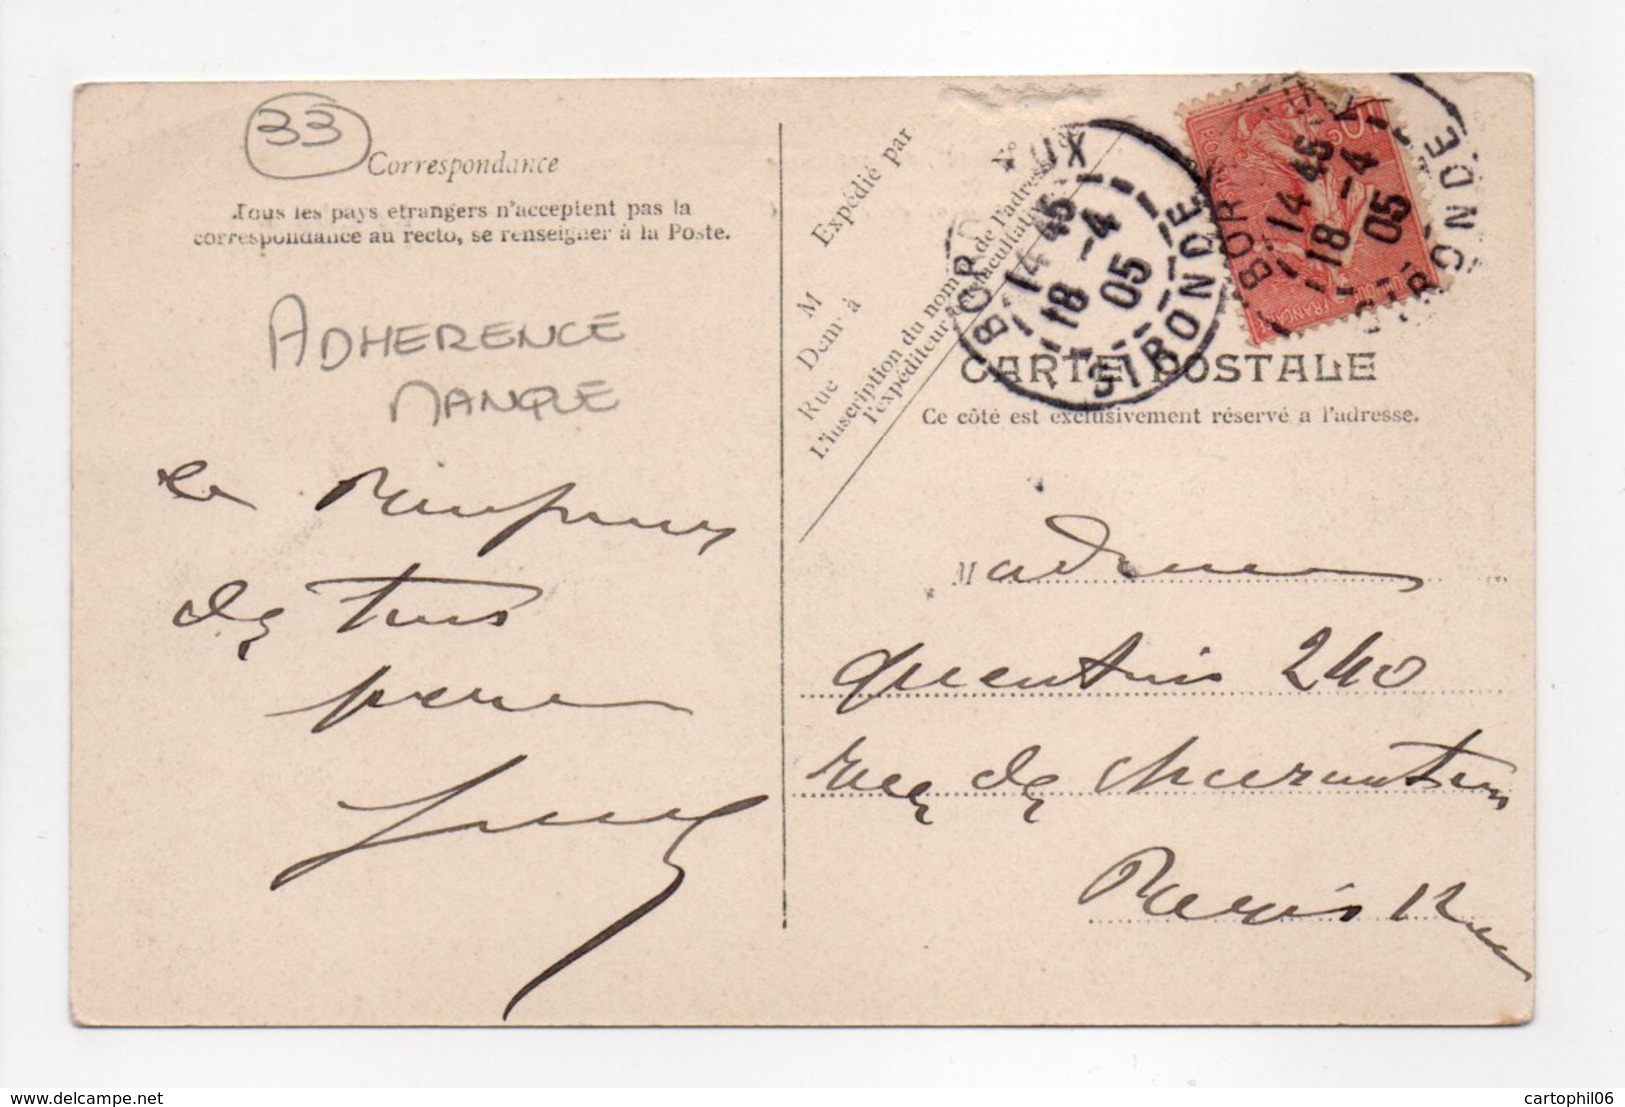 33
Correspondance
Tous les pays étrangers n'acceptent pas la
correspondance au recto, se renseigner à la Poste.
ADHERENCE
MANQUE
de tous
père
M Expédié par
Demt à
Rue
N°
L'inscription du nom et de l'adresse de
l'expéditeur est facultative.
BORDEAUX
14 45
18 -4
05
GIRONDE
BORDEAUX
14 45
18 -4
05
GIRONDE
CARTE POSTALE
Ce côté est exclusivement réservé a l'adresse.
Madame
Quentin 240
rue de Charenton
Paris 12
www.delcampe.net
cartophil06